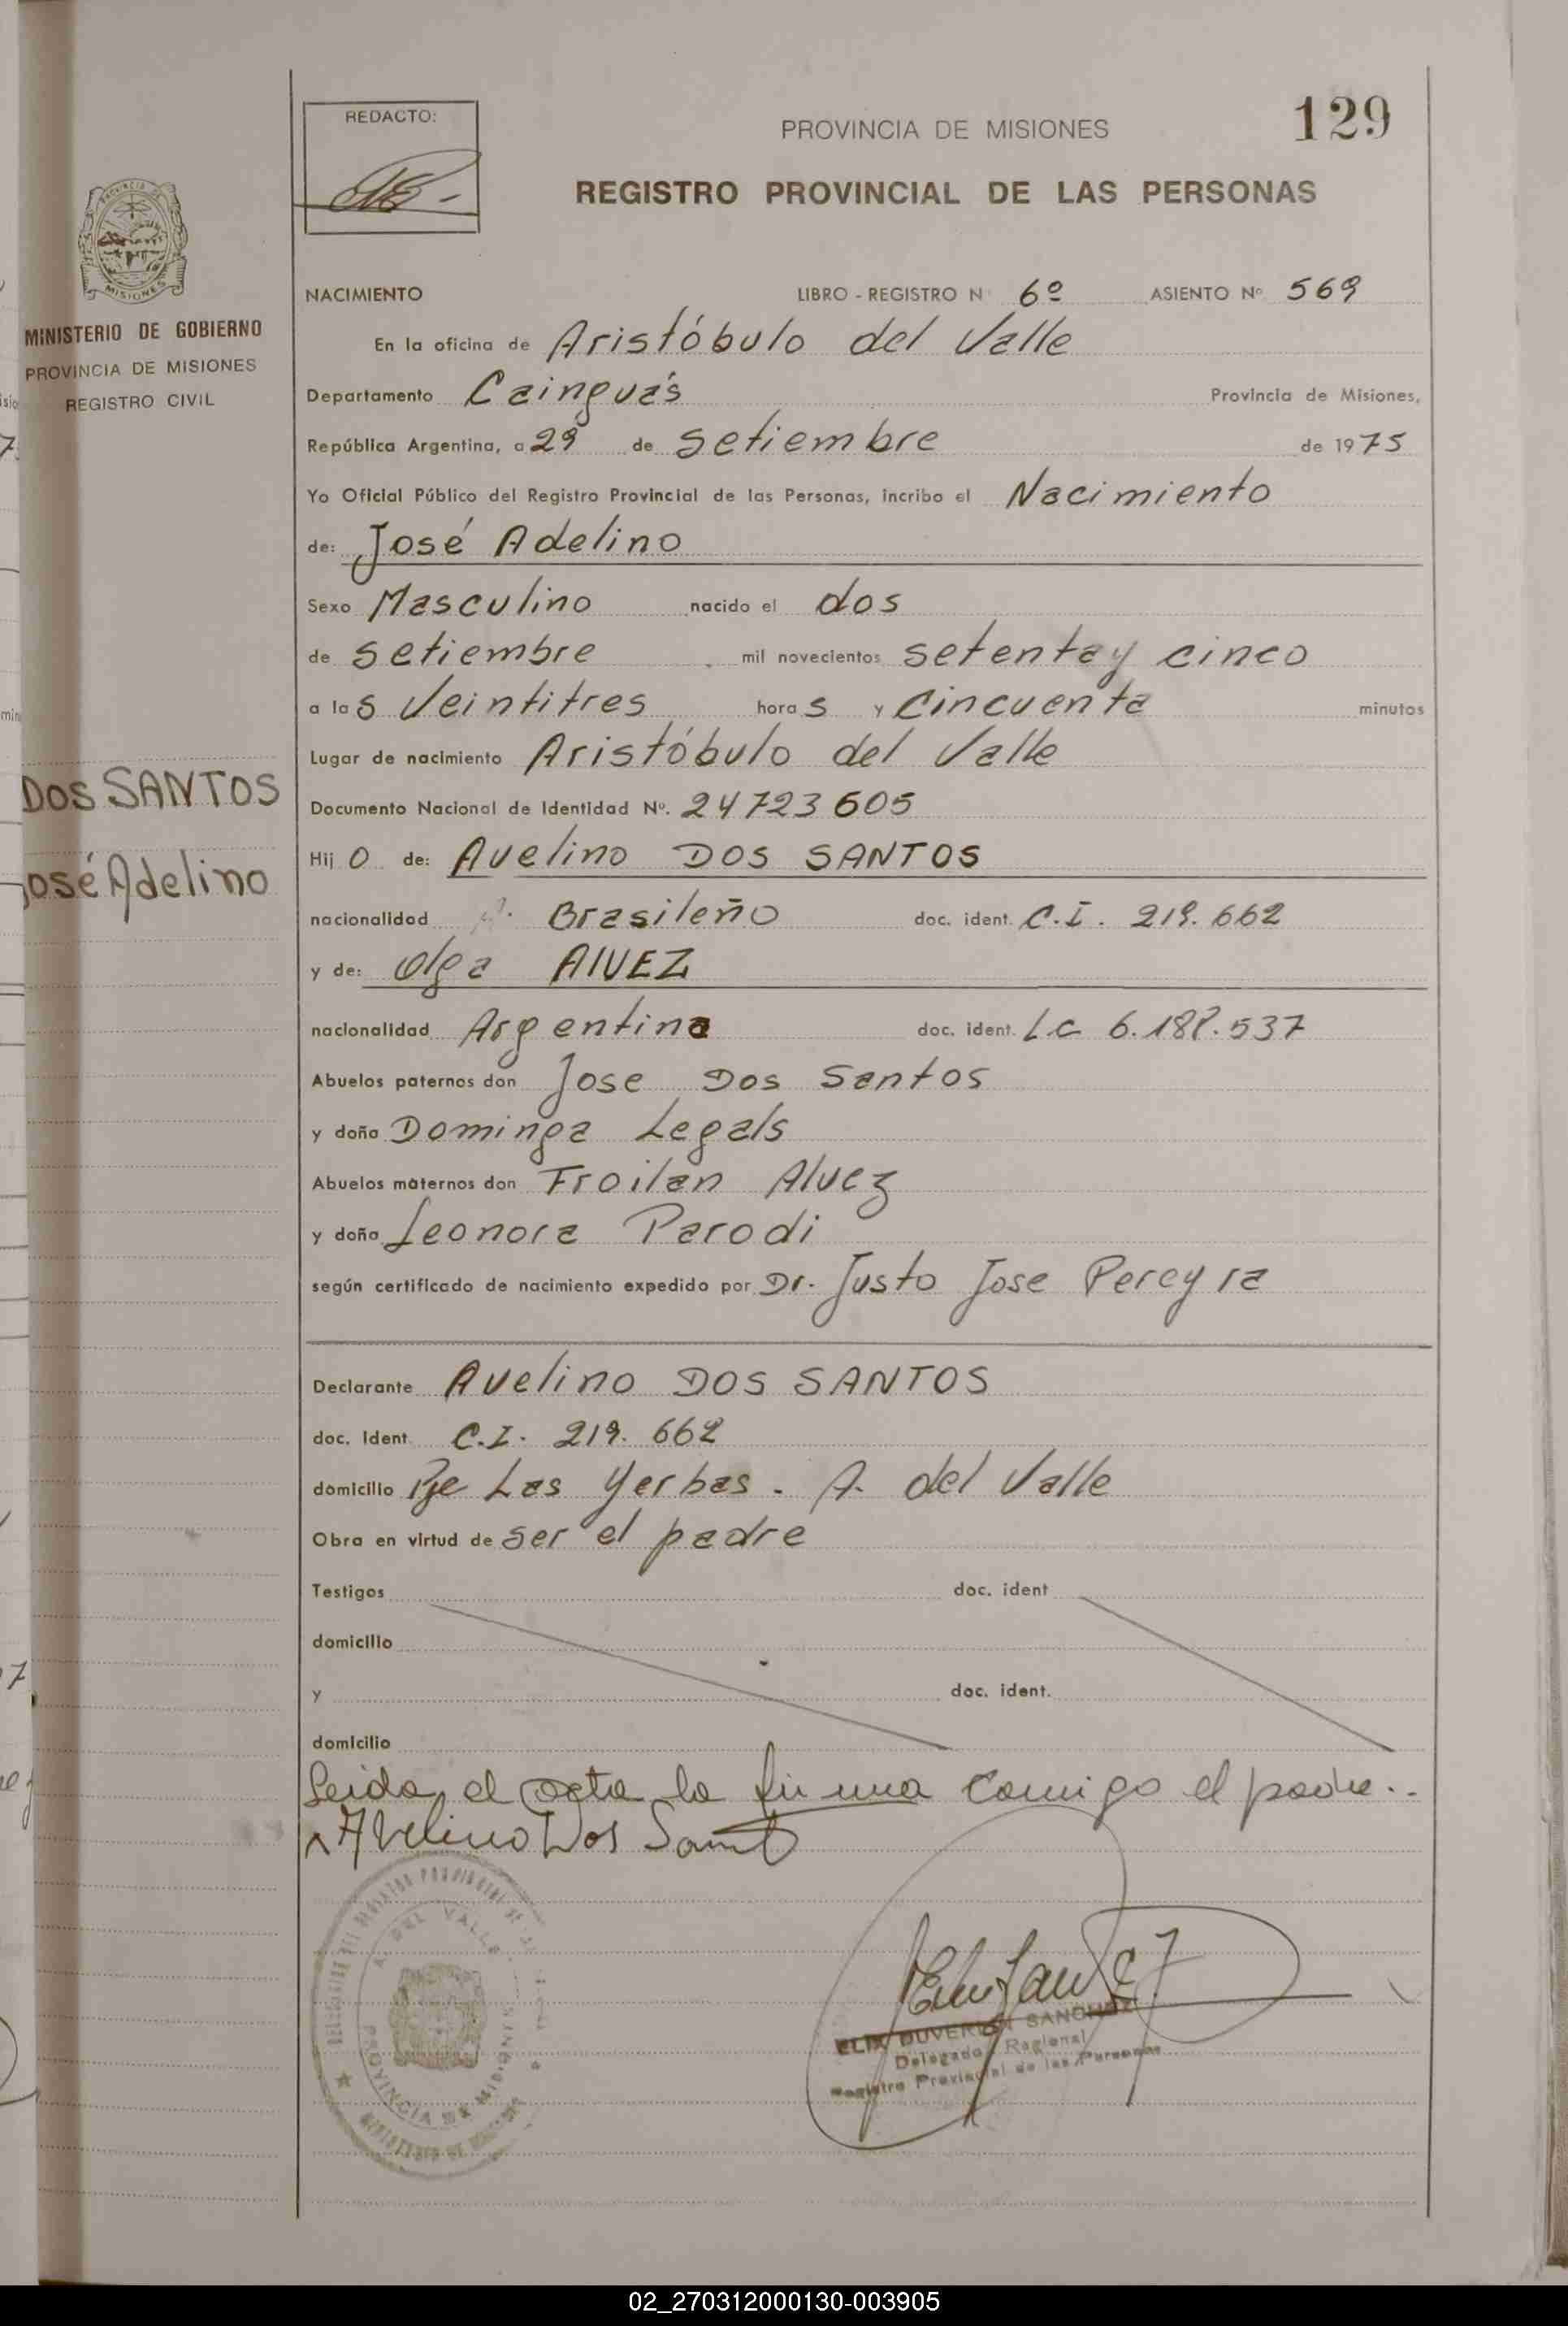 129
REDACTO:
PROVINCIA DE MISIONES
REGISTRO PROVINCIAL DE LAS PERSONAS
MISIONES
MINISTERIO DE GOBIERNO
PROVINCIA DE MISIONES
REGISTRO CIVIL
DOS SANTOS
José Adelino
NACIMIENTO LIBRO - REGISTRO N° 6º ASIENTO Nº 569
En la oficina de Aristóbulo del Valle
Departamento Cainguás Provincia de Misiones,
República Argentina, a 29 de Setiembre de 1975
Yo Oficial Público del Registro Provincial de las Personas, incribo el Nacimiento
de: José Adelino
Sexo Masculino nacido el dos
de Setiembre mil novecientos setenta y cinco
a las Veintitres horas y Cincuenta minutos
Lugar de nacimiento Aristóbulo del Valle
Documento Nacional de Identidad Nº. 24723605
Hijo de: Avelino DOS SANTOS
nacionalidad Brasileño doc. ident. C.I. 219.662
y de: Olga AlVEZ
nacionalidad Argentina doc. ident. LC 6.188.537
Abuelos paternos don Jose Dos Santos
y doña Dominga Legals
Abuelos maternos don Froilan Alvez
y doña Leonora Parodi
según certificado de nacimiento expedido por Dr. Justo Jose Pereyra
Declarante Avelino DOS SANTOS
doc. Ident. C.I. 219.662
domicilio Pje Las Yerbas. A. del Valle
Obra en virtud de ser el padre
Testigos doc. ident
domicilio
y doc. ident.
domicilio
Leida el acta la firma comigo el padre..
Avelino Dos Sant
A. DEL VALLE
PROVINCIA DE MISIONES
ELIX DUVERLAN SANCHEZ
Delegado Regional
Registro Provincial de las Personas
02_270312000130-003905